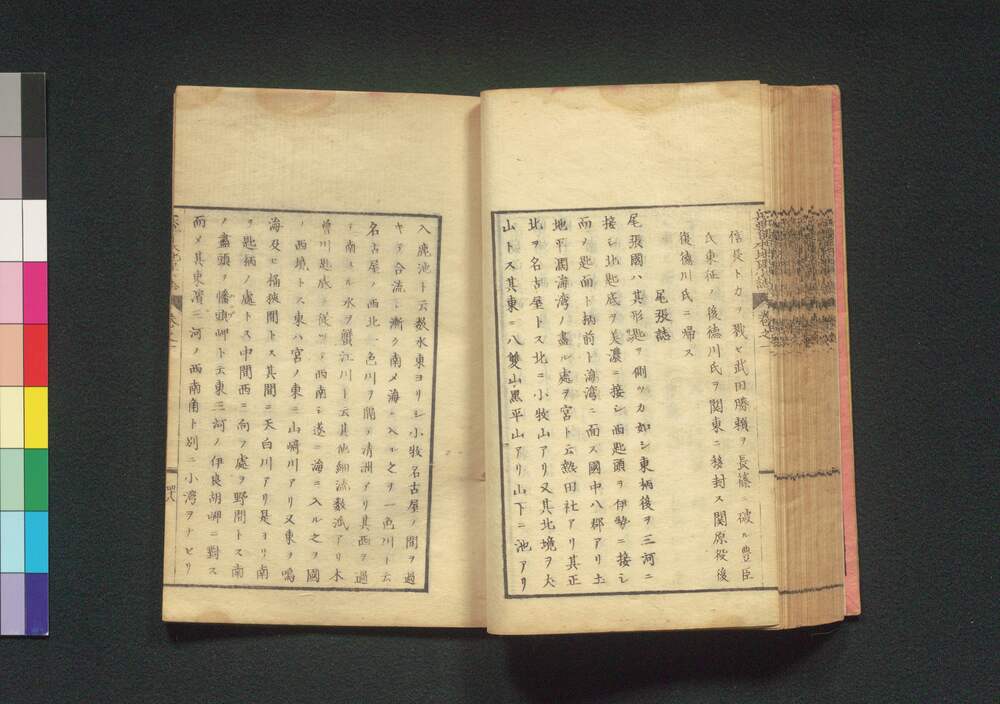 信長ト力ヲ戮セ武田勝頼ヲ長篠ニ破ル豊臣
氏東征ノ後徳川氏ヲ関東ニ移封ス関原役後
復徳川氏ニ帰ス
尾張誌
尾張國ハ其形匙ヲ側ツカ如シ東柄後ヲ三河ニ
接シ北匙底ヲ美濃ニ接シ西匙頭ヲ伊勢ニ接シ
而ノ匙面ト柄前ト海湾ニ面ス國中八郡アリ土
地平濶海湾ノ盡ル處ヲ宮ト云熱田社アリ其正
北ヲ名古屋トス北ニ小牧山アリ又其北境ヲ犬
山トス其東ニ八雙山黒平山アリ山下ニ池アリ
入鹿池ト云数水東ヨリシ小牧名古屋ノ間ヲ過
キテ合流シ漸ク南メ海ニ入ル之ヲ一色川ト云
名古屋ノ西北一色川ヲ隔テ清洲アリ其西ヲ過
テ南スル水ヲ蟹江川ト云其他細流数派アリ木
曽川匙底ニ従ツテ西南シ遂ニ海ニ入ル之ヲ國
ノ西境トス東ハ宮ノ東ニ山﨑川アリ又東ヲ鳴
海及ヒ桶狭間トス其間ニ天白川アリ是ヨリ南
ヲ匙柄ノ處トス中間西ニ向フ處ヲ野間トス南
ノ盡頭ヲ幡頭岬ト云東三河ノ伊良胡岬ニ對ス
而メ其東濱三河ノ西南角ト別ニ小湾ヲナセリ
卷之一